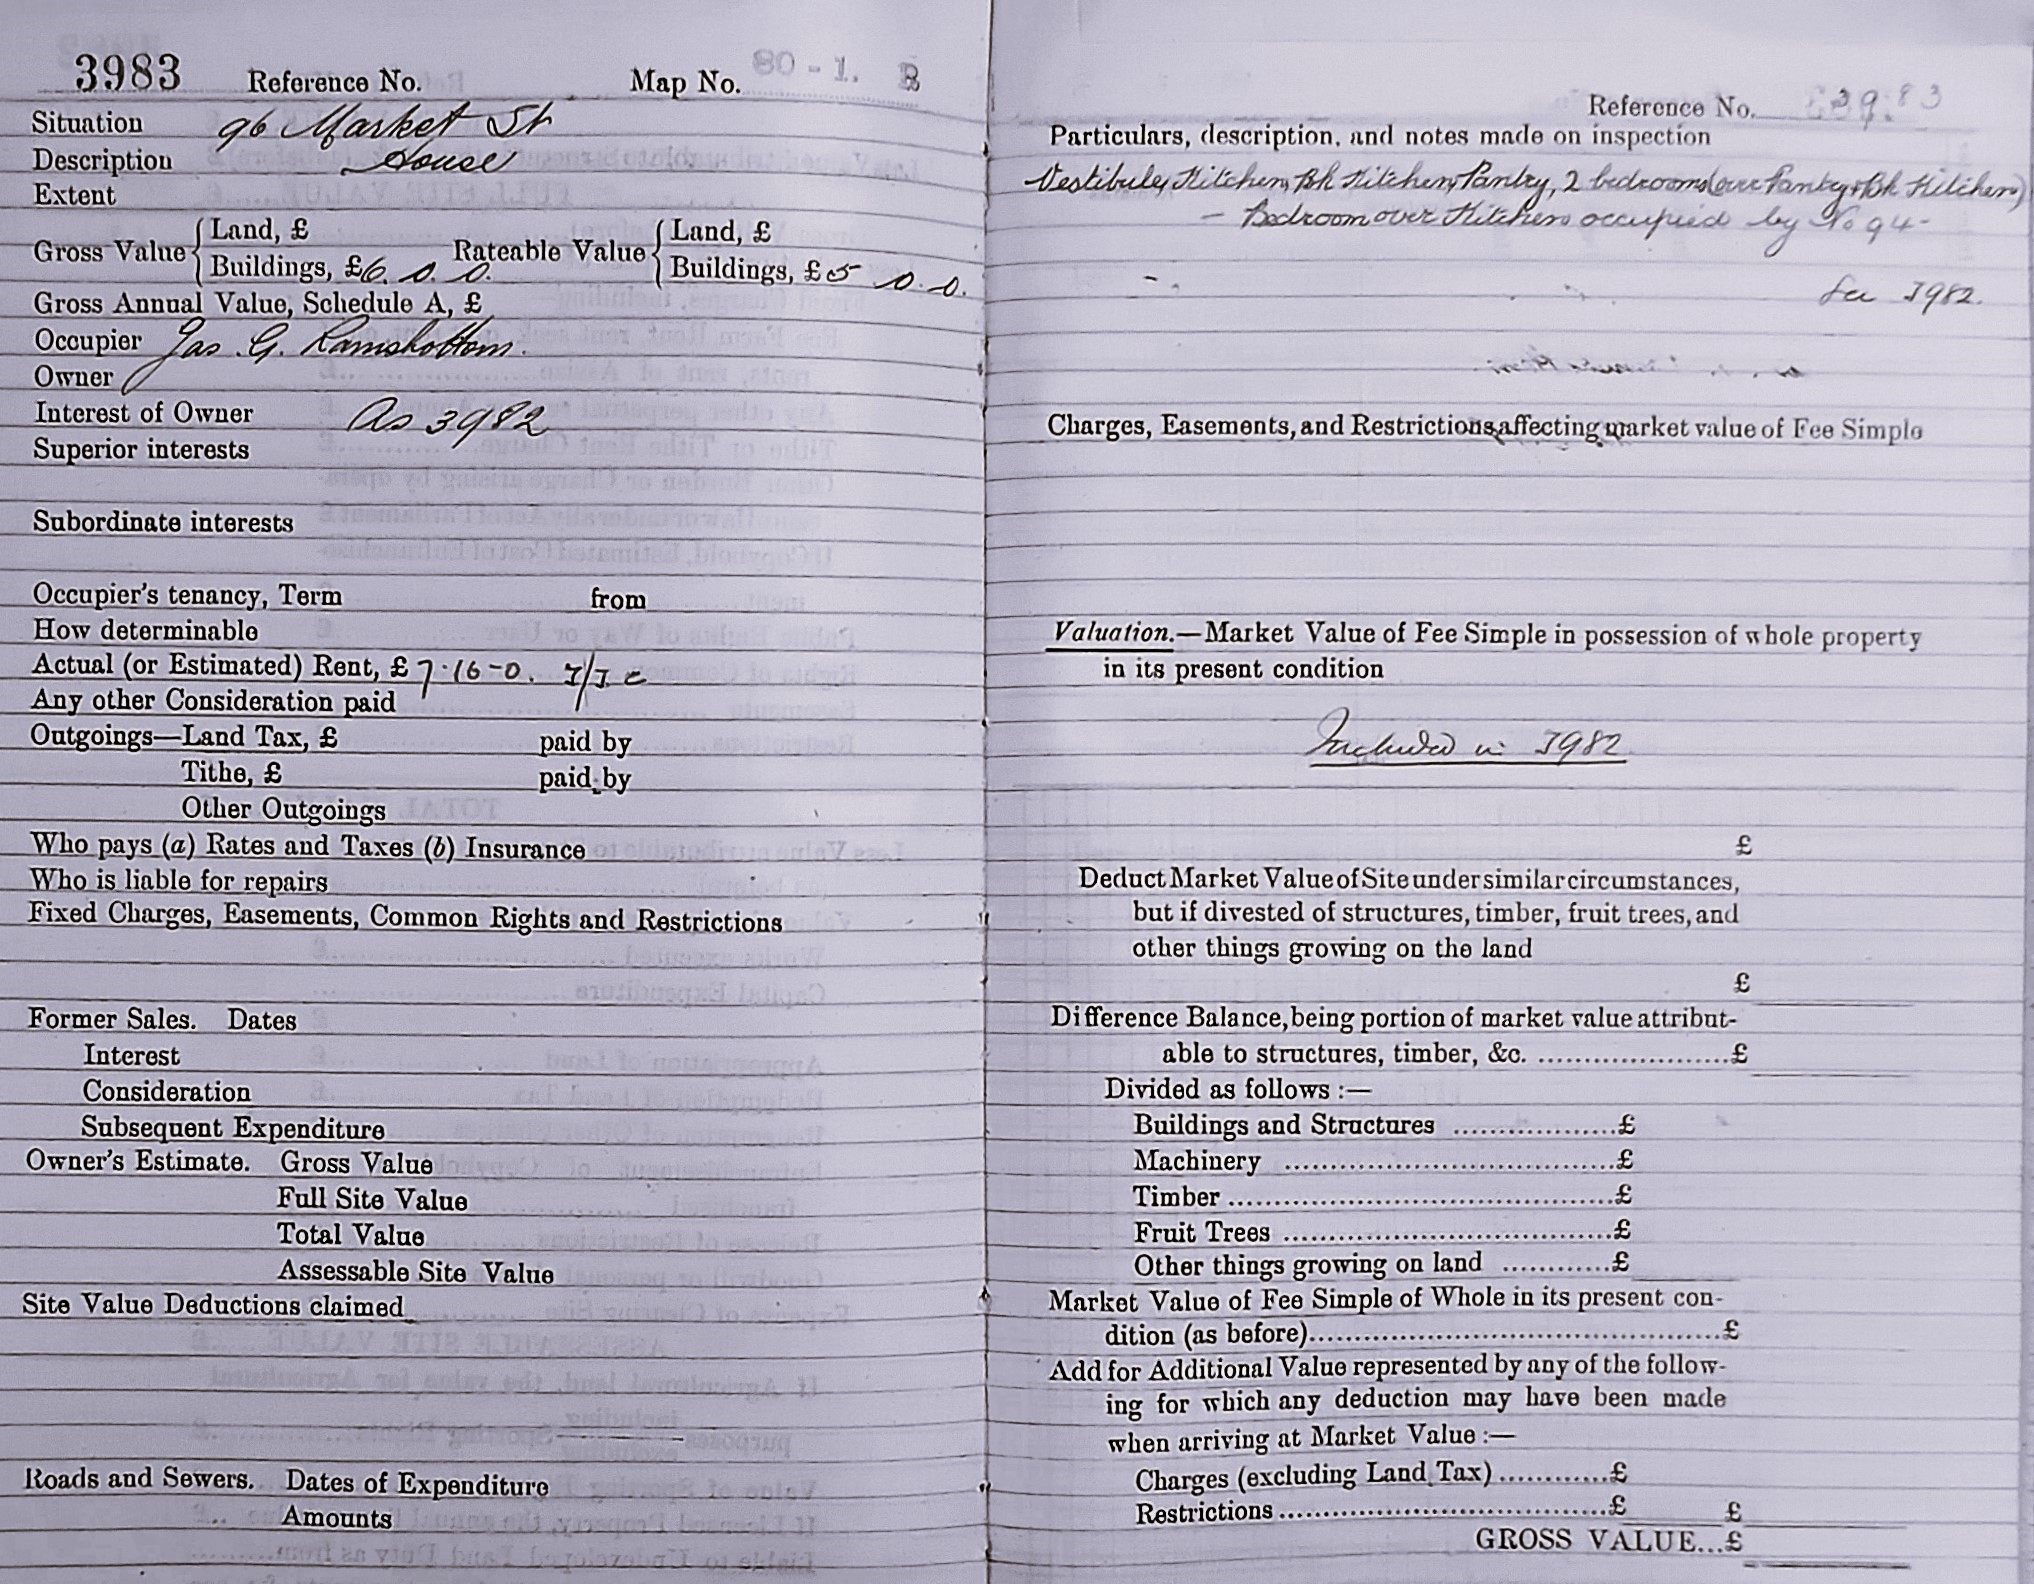 3983 Reference No. Map No. 80-1. B
Situation 96 Market St
Description House
Extent
Gross Value { Land, £ Rateable Value { Land, £
Buildings, £6. 0. 0. Buildings, £5 0. 0.
Gross Annual Value, Schedule A, £
Occupier Jas. G. Ramsbottom.
Owner
Interest of Owner As 3982
Superior interests
Subordinate interests
Occupier's tenancy, Term from
How determinable
Actual (or Estimated) Rent, £7-16-0.
Any other Consideration paid
Outgoings—Land Tax, £ paid by
Tithe, £ paid by
Other Outgoings
Who pays (a) Rates and Taxes (b) Insurance
Who is liable for repairs
Fixed Charges, Easements, Common Rights and Restrictions
Former Sales. Dates
Interest
Consideration
Subsequent Expenditure
Owner's Estimate. Gross Value
Full Site Value
Total Value
Assessable Site Value
Site Value Deductions claimed
Roads and Sewers. Dates of Expenditure
Amounts
Reference No. 3983
Particulars, description, and notes made on inspection
Vestibule, Kitchen, Bk Kitchen, Pantry, 2 bedrooms (over Pantry & Bk Kitchen)
- Bedroom over Kitchen occupied by No 94-
See 3982.
Charges, Easements, and Restrictions affecting market value of Fee Simple
Valuation.—Market Value of Fee Simple in possession of whole property
in its present condition
Included in 3982
£
Deduct Market Value of Site under similar circumstances,
but if divested of structures, timber, fruit trees, and
other things growing on the land
£
Difference Balance, being portion of market value attribut-
able to structures, timber, &c. ......................£
Divided as follows :—
Buildings and Structures ..................£
Machinery ....................................£
Timber..........................................£
Fruit Trees ....................................£
Other things growing on land ............£
Market Value of Fee Simple of Whole in its present con-
dition (as before)............................................£
Add for Additional Value represented by any of the follow-
ing for which any deduction may have been made
when arriving at Market Value :—
Charges (excluding Land Tax)............£
Restrictions......................................£ £
GROSS VALUE...£